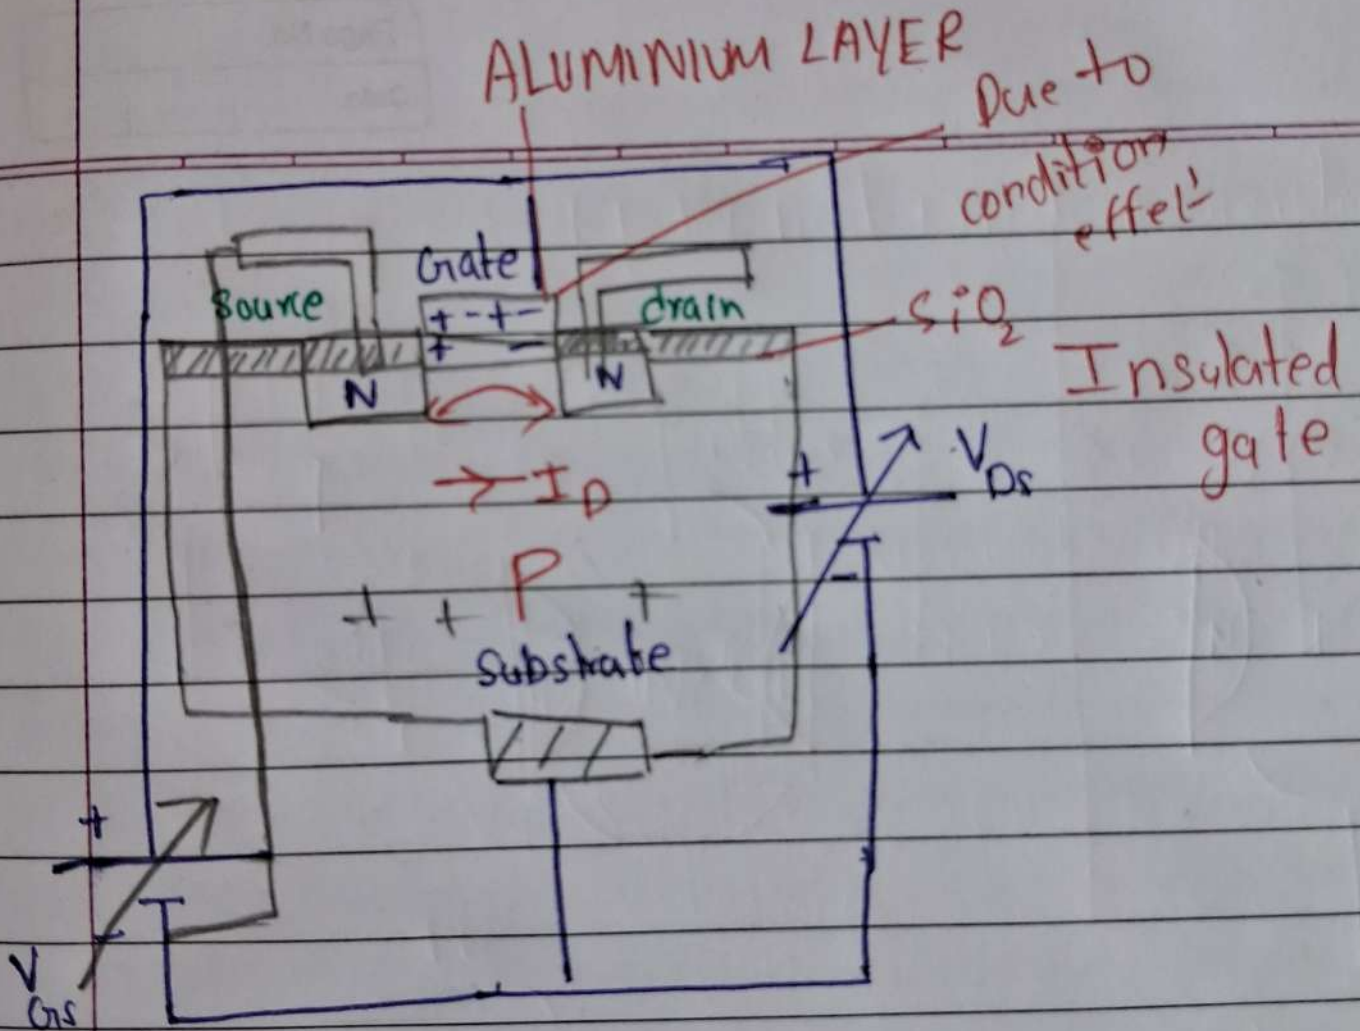 ALUMINIUM LAYER
Due to
condition
effelt
Gate
Source
+ - + -
drain
+ -
SiO2
N
N
Insulated
gate
+
VDS
→ ID
-
P
+ + +
Substrate
+
-
VGS